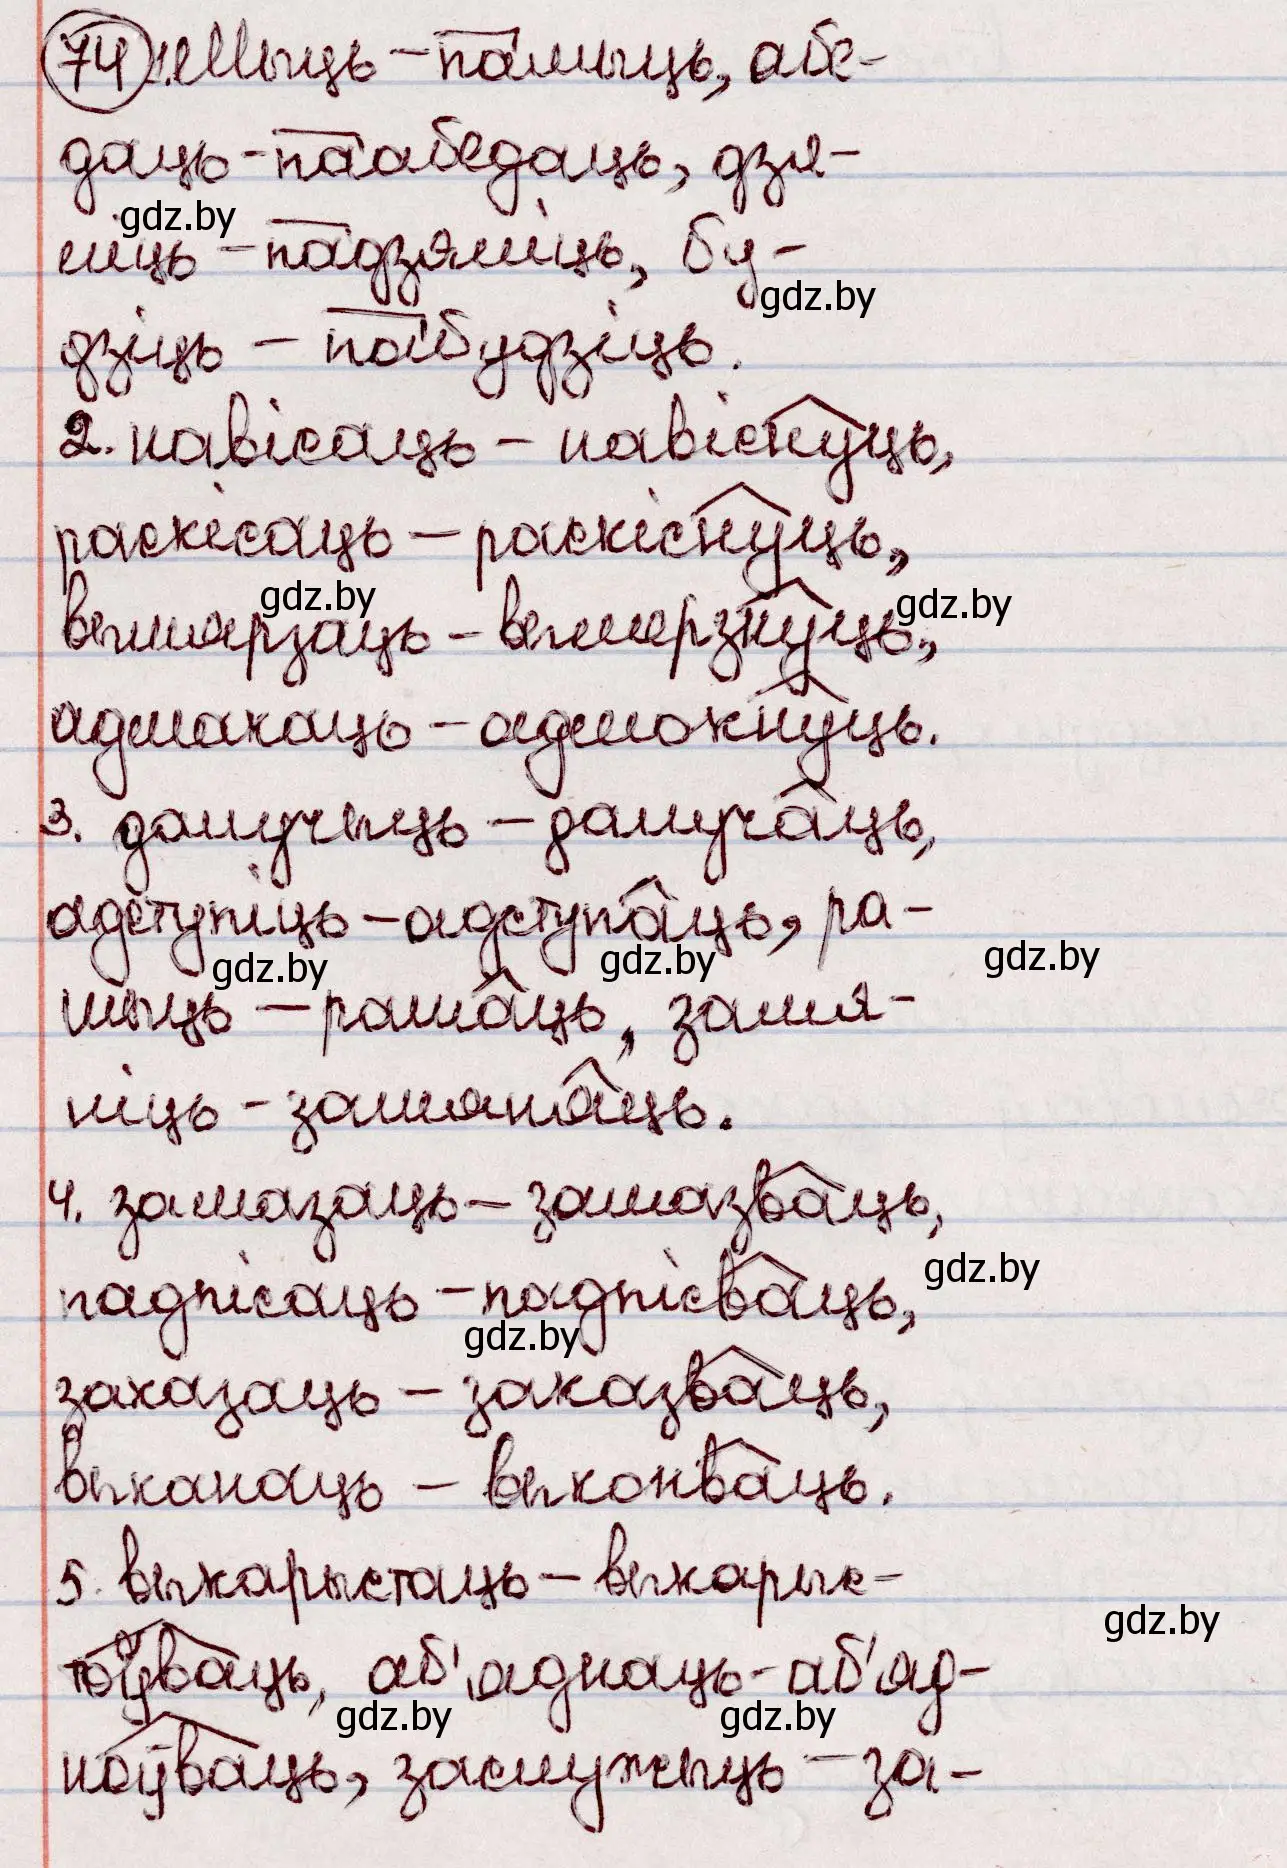 74 1. Мыць – памыць, абе-
даць – паабедаць, дзя-
gdz.by
ліць – падзяліць, бу-
gdz.by
дзіць – пабудзіць.
2. навісаць – навіснуць,
раскісаць – раскіснуць,
gdz.by gdz.by
вымярзаць – вымерзнуць,
адмакаць – адмокнуць.
3. далучыць – далучаць,
адступіць – адступаць, ра-
gdz.by gdz.by gdz.by
шыць – рашаць, замя-
ніць – замяняць.
4. замазаць – замазваць,
gdz.by
падпісаць – падпісваць,
gdz.by
заказаць – заказваць,
выканаць – выконваць.
5. выкарыстаць – выкарыс-
gdz.by
тоўваць, аб'яднаць – аб'яд-
gdz.by gdz.by
ноўваць, заслужыць – за-